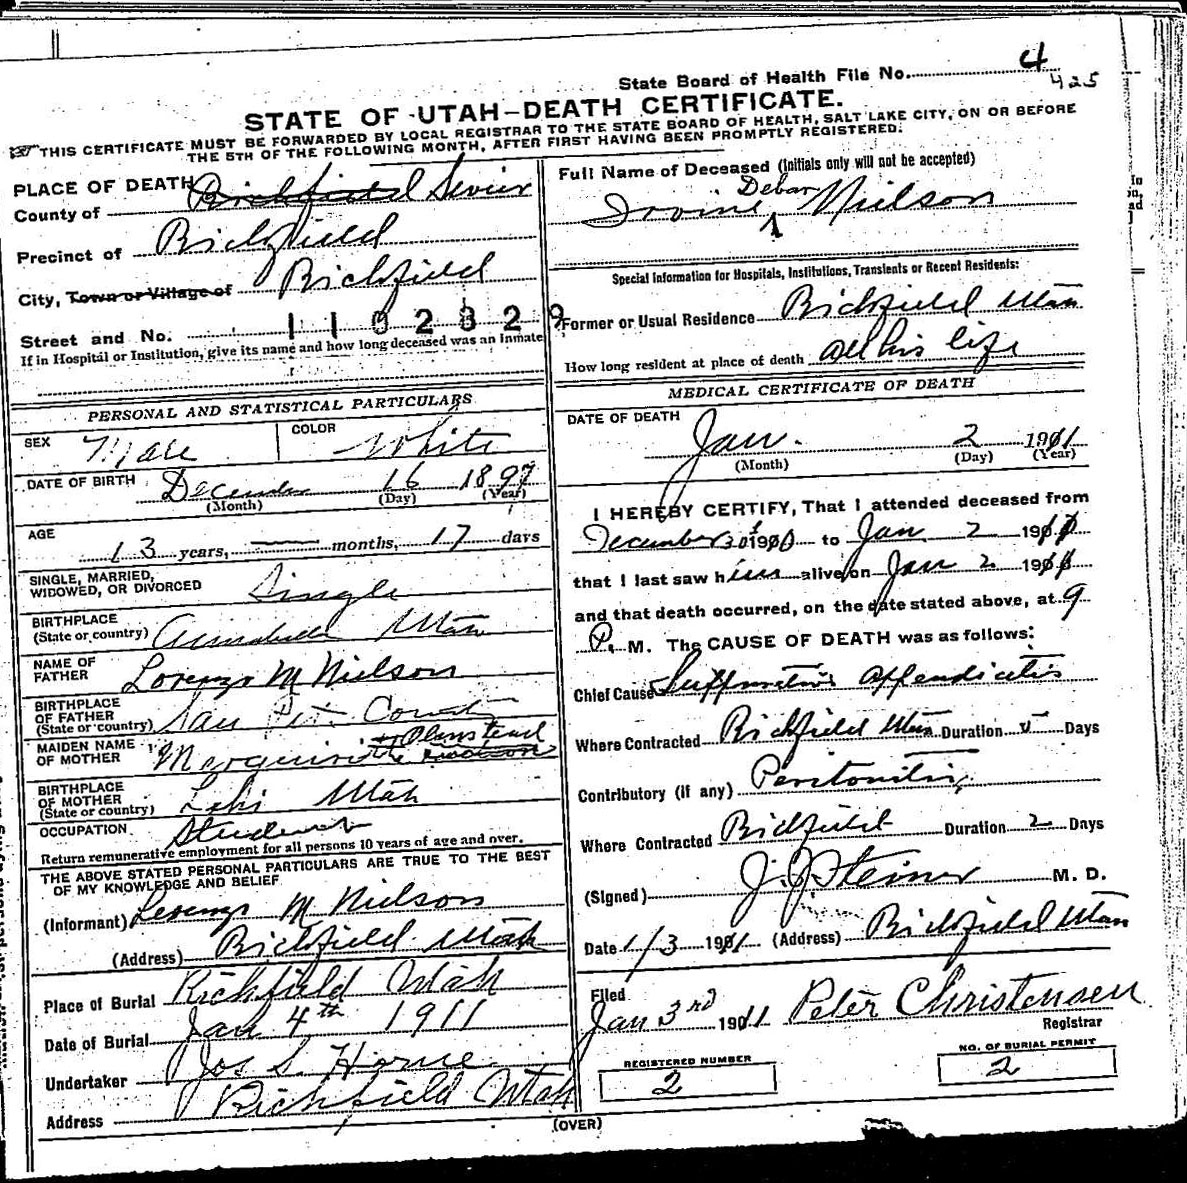 State Board of Health File No. 4
425
STATE OF UTAH-DEATH CERTIFICATE.
THIS CERTIFICATE MUST BE FORWARDED BY LOCAL REGISTRAR TO THE STATE BOARD OF HEALTH, SALT LAKE CITY, ON OR BEFORE
THE 5TH OF THE FOLLOWING MONTH, AFTER FIRST HAVING BEEN PROMPTLY REGISTERED.
PLACE OF DEATH
County of Richfield Sevier
Precinct of Richfield
City, Town or Village of Richfield
Street and No. 1 1 0 2 3 2 9
If in Hospital or Institution, give its name and how long deceased was an inmate
PERSONAL AND STATISTICAL PARTICULARS
SEX Male COLOR White
DATE OF BIRTH December 16 1897
(Month) (Day) (Year)
AGE 13 years, months, 17 days
SINGLE, MARRIED,
WIDOWED, OR DIVORCED Single
BIRTHPLACE
(State or country) Utah
NAME OF
FATHER Lorenzo M Nielson
BIRTHPLACE
OF FATHER
(State or country) San Pete County
MAIDEN NAME
OF MOTHER Olmstead
BIRTHPLACE
OF MOTHER
(State or country) Lehi Utah
OCCUPATION Student
Return remunerative employment for all persons 10 years of age and over.
THE ABOVE STATED PERSONAL PARTICULARS ARE TRUE TO THE BEST
OF MY KNOWLEDGE AND BELIEF
(Informant) Lorenzo M Nielson
(Address) Richfield Utah
Place of Burial Richfield Utah
Date of Burial Jan 4th 1911
Undertaker Jos S. Horne
Address Richfield Utah
(OVER)
Full Name of Deceased (Initials only will not be accepted)
Debar
Irvine Nielson
Special Information for Hospitals, Institutions, Transients or Recent Residents:
Former or Usual Residence Richfield Utah
How long resident at place of death All his life
MEDICAL CERTIFICATE OF DEATH
DATE OF DEATH
Jan. 2 1911
(Month) (Day) (Year)
I HEREBY CERTIFY, That I attended deceased from
December 30 1910 to Jan 2 1911
that I last saw him alive on Jan 2 1911
and that death occurred, on the date stated above, at 9
P. M. The CAUSE OF DEATH was as follows:
Chief Cause Suppurative Appendicitis
Where Contracted Richfield Utah Duration 5 Days
Contributory (if any) Peritonitis
Where Contracted Richfield Duration 2 Days
(Signed) J. J. Steiner M. D.
Date 1/3 1911 (Address) Richfield Utah
Filed
Jan 3rd 1911 Peter Christensen
Registrar
REGISTERED NUMBER
2
NO. OF BURIAL PERMIT
2